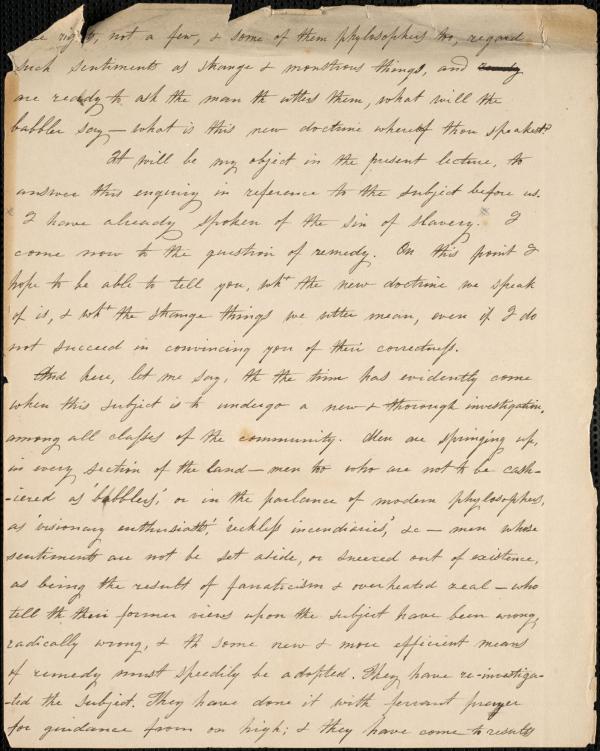 rights, not a few, & some of them phylosophers too, regard
such sentiments as strange & monstrous things, and ready
are ready to ask the man th utters them, what will the
babbler say — what is this new doctrine whereof thou speakest?
It will be my object in the present lecture, to
answer this enquiry in reference to the subject before us.
I have already spoken of the sin of slavery. I
come now to the question of remedy. On this point I
hope to be able to tell you, wht the new doctrine we speak
of is, & wht the strange things we utter mean, even if I do
not succeed in convincing you of their correctness.
And here, let me say, th the time has evidently come
when this subject is to undergo a new & thorough investigation,
among all classes of the community. Men are springing up,
in every section of the land — men too who are not to be cash-
-iered as 'babblers', or in the parlance of modern phylosophers,
as 'visionary enthusiasts', 'reckless incendiaries', &c — men whose
sentiments are not be set aside, or sneered out of existence,
as being the result of fanaticism & overheated zeal — who
tell th their former views upon the subject have been wrong,
radically wrong, & th some new & more efficient means
of remedy must speedily be adopted. They have re-investiga-
-ted the subject. They have done it with fervant prayer
for guidance from on high; & they have come to results